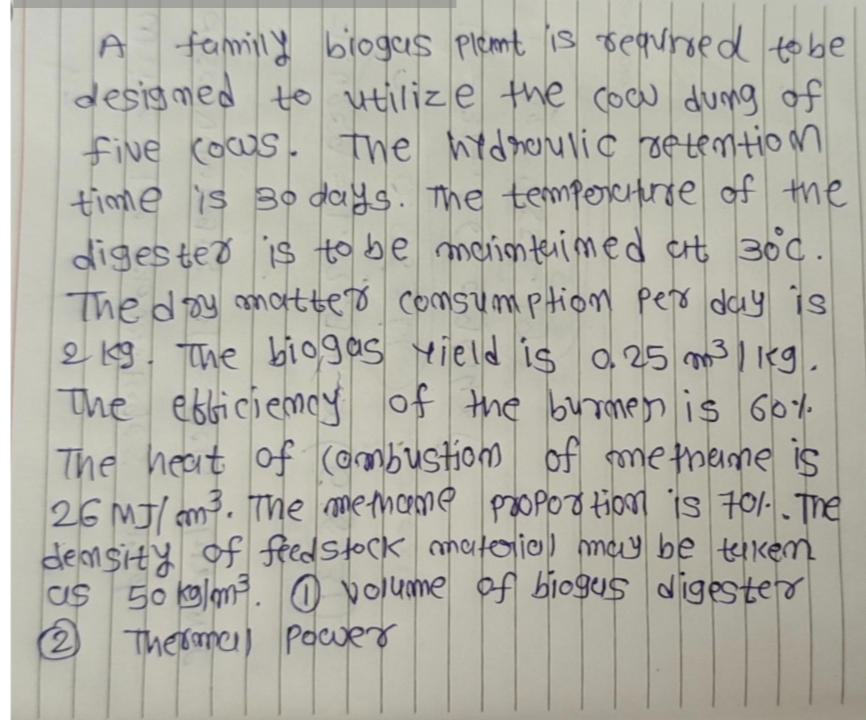 A family biogas plant is required to be
designed to utilize the cow dung of
five cows. The hydraulic retention
time is 30 days. The temperature of the
digester is to be maintained at 30°C.
The dry matter consumption per day is
2 kg. The biogas yield is 0.25 m³/kg.
The efficiency of the burner is 60%.
The heat of combustion of methane is
26 MJ/m³. The methane proportion is 70%. The
density of feedstock material may be taken
as 50 kg/m³. ① volume of biogas digester
② Thermal power